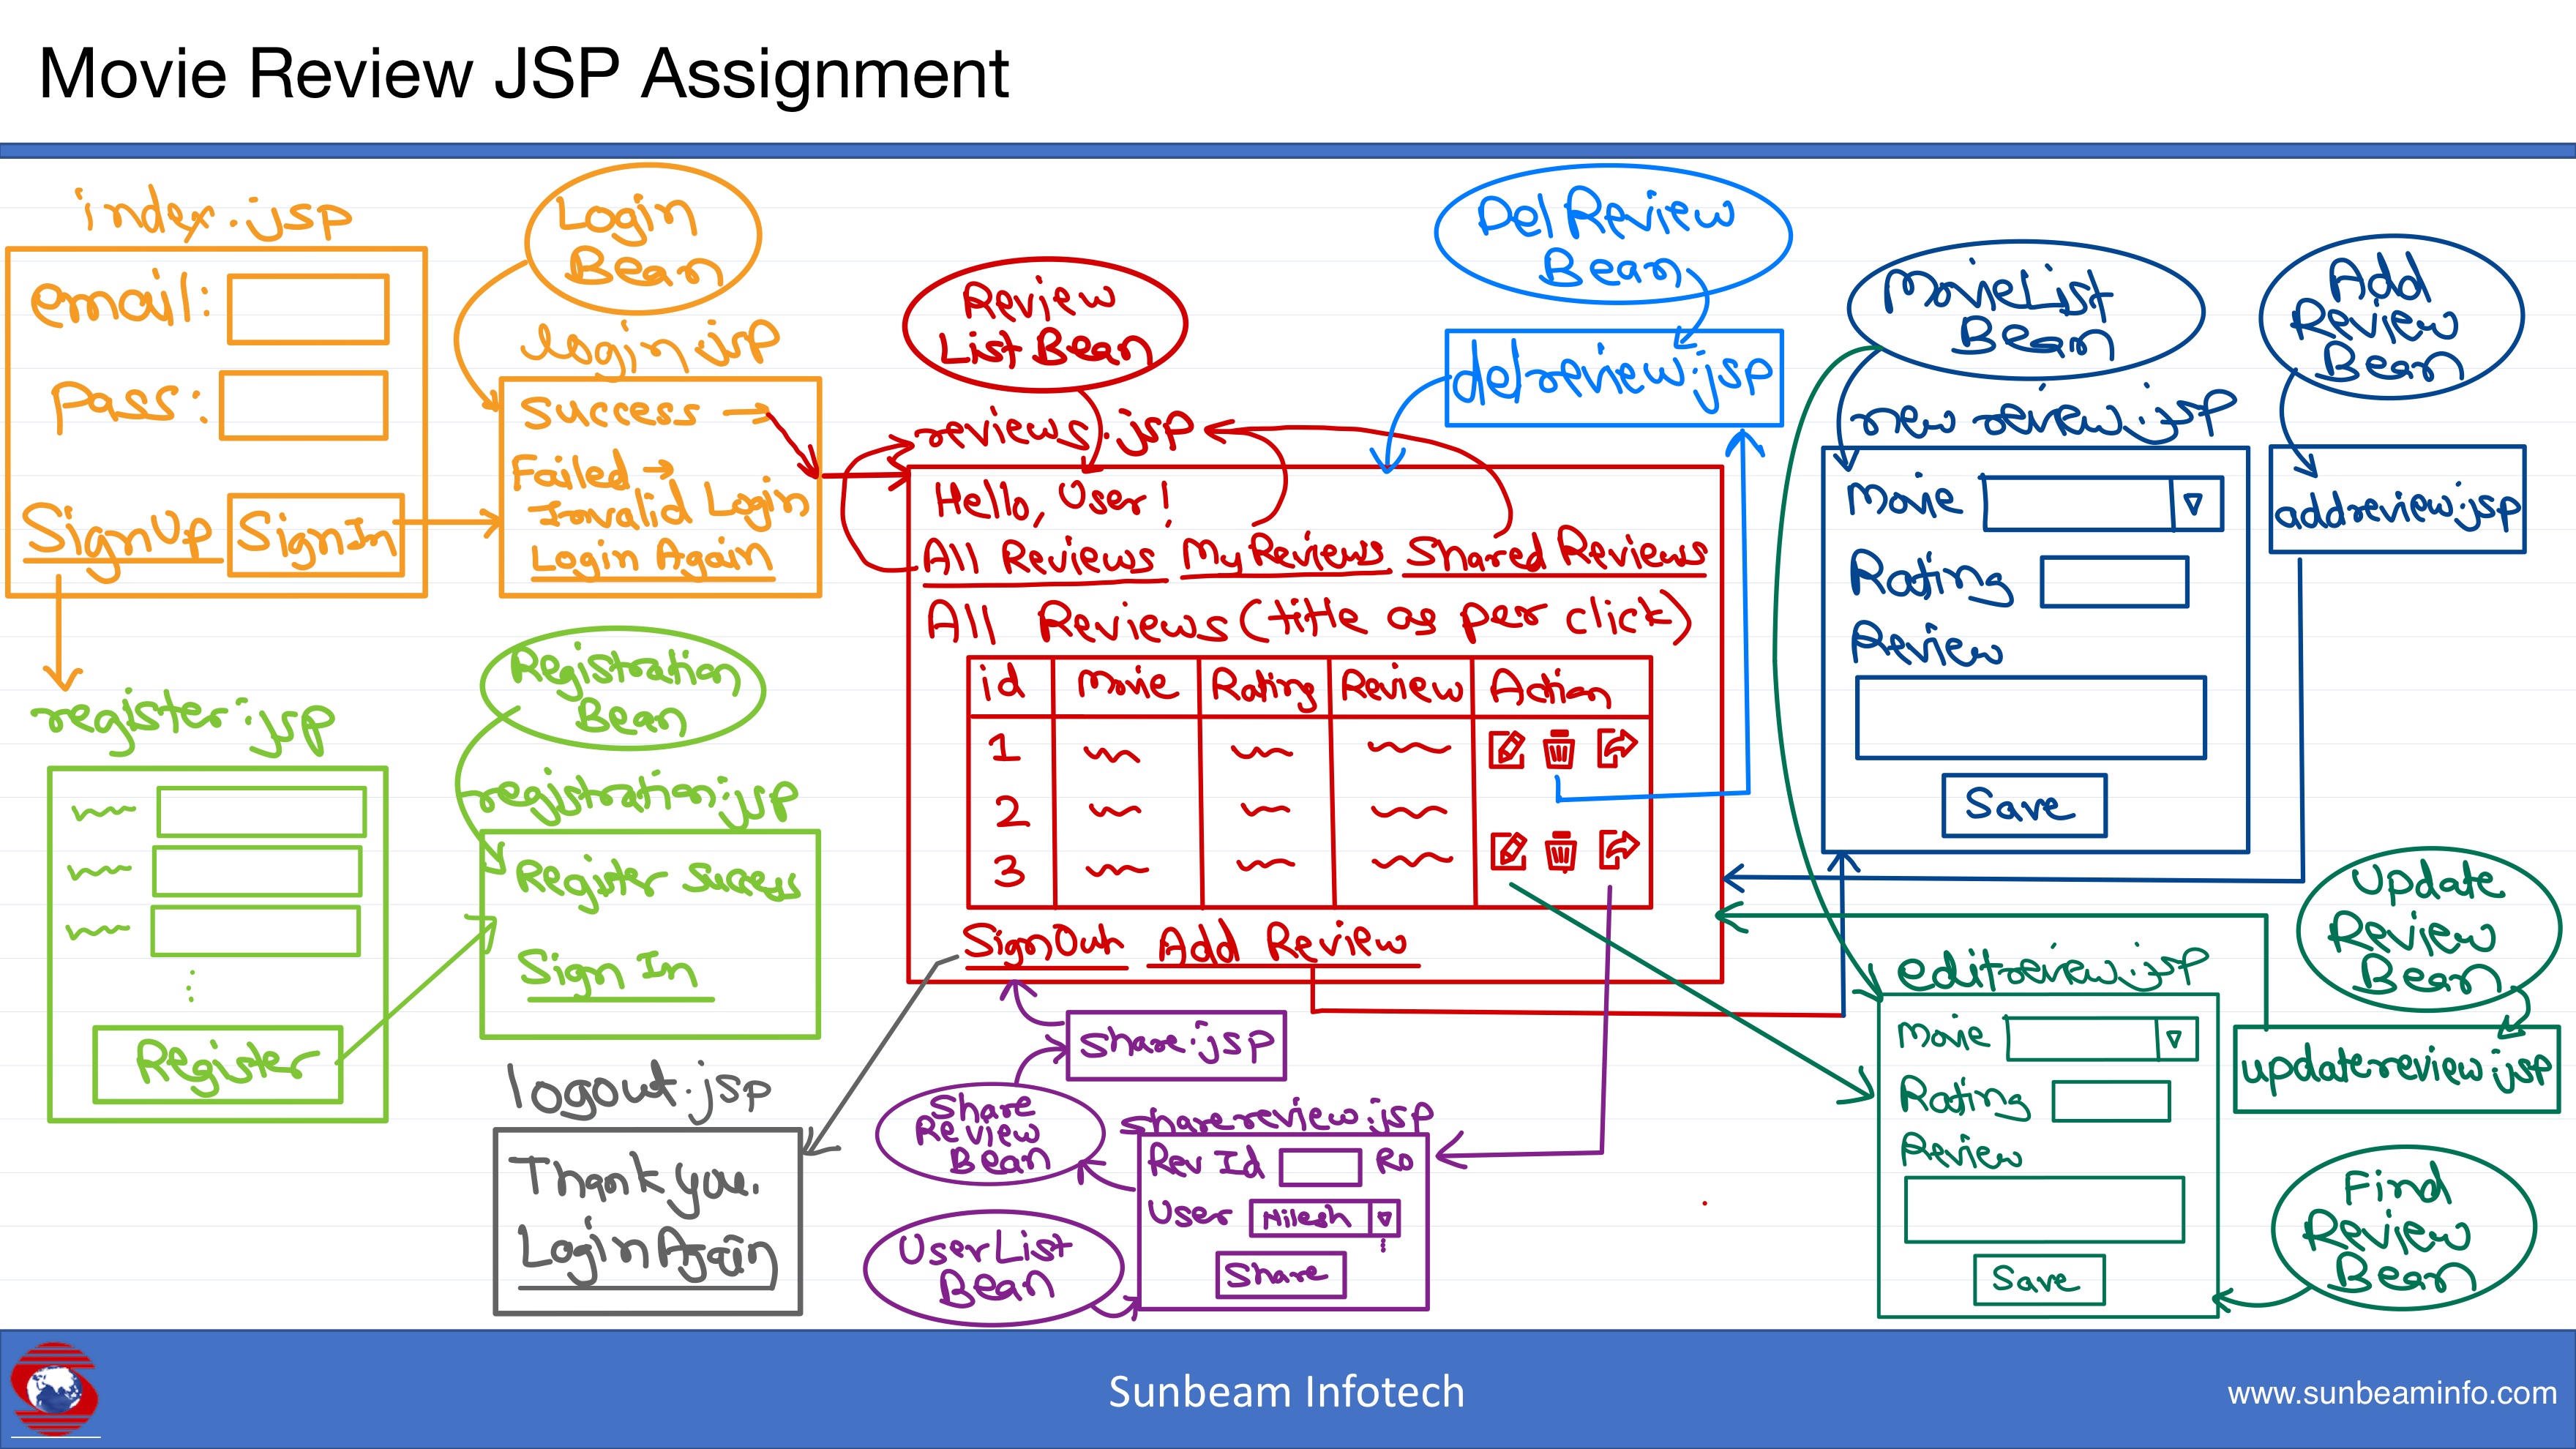 Movie Review JSP Assignment
index.jsp
email:
Pass:
SignUp SignIn
Login
Bean
login.jsp
Success →
Failed →
Invalid Login
Login Again
register.jsp
Register
Registration
Bean
registration.jsp
Register Sucess
Sign In
logout.jsp
Thank you.
Login Again
Review
List Bean
reviews.jsp
Hello, User!
All Reviews My Reviews Shared Reviews
All Reviews (title as per click)
id Movie Rating Review Action
1
2
3
SignOut Add Review
share.jsp
Share
Review
Bean
sharereview.jsp
Rev Id RO
User Nilesh
Share
UserList
Bean
Del Review
Bean
delreview.jsp
MovieList
Bean
new review.jsp
Movie
Rating
Review
Save
Add
Review
Bean
addreview.jsp
Update
Review
Bean
updatereview.jsp
editreview.jsp
Movie
Rating
Review
Save
Find
Review
Bean
Sunbeam Infotech
www.sunbeaminfo.com